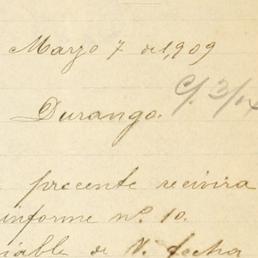 Marzo 7 de 1,909
Durango.
precente recivira
informe nº. 10.
de N. fecha